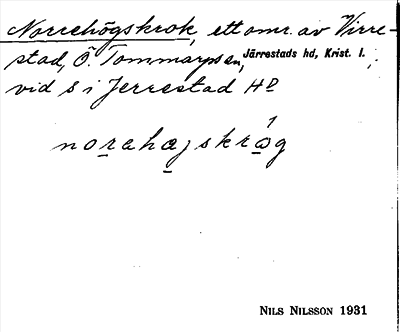 Norrehögskrok, ett omr. av Virre-
stad, Ö. Tommarps sn, Järrestads hd, Krist. l.
vid S i Jerrestad Hd
norahæjskråg
NILS NILSSON 1931